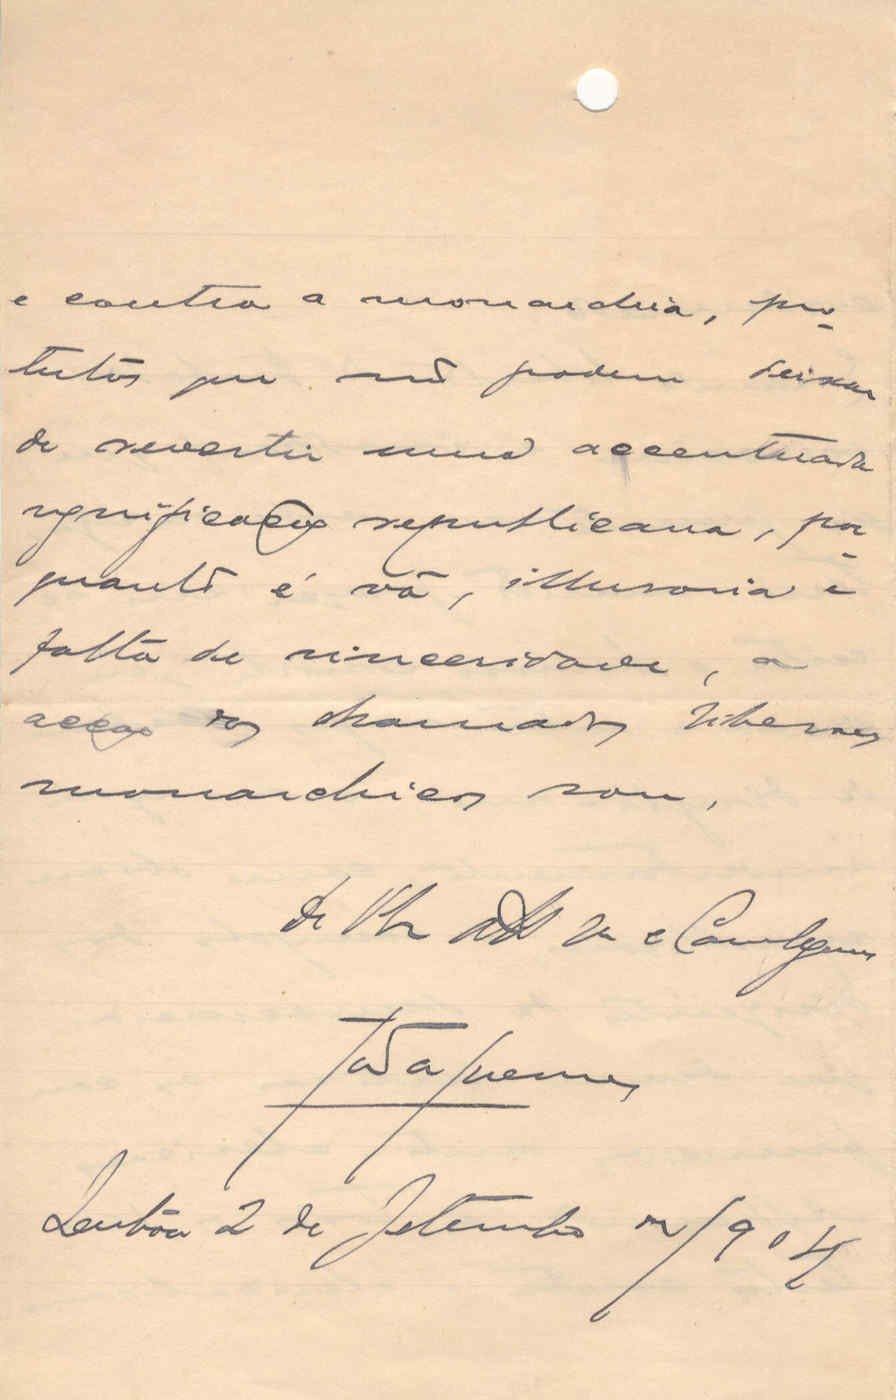 e contra a monarchia, pro-
testos que não podem deixar
de revestir uma accentuada
significação republicana, por-
quanto é vã, illusoria e
falta de sinceridade, a
acção dos chamados liberaes
monarchicos
de V. e Correlig
Lisbôa 2 de Setembro /904